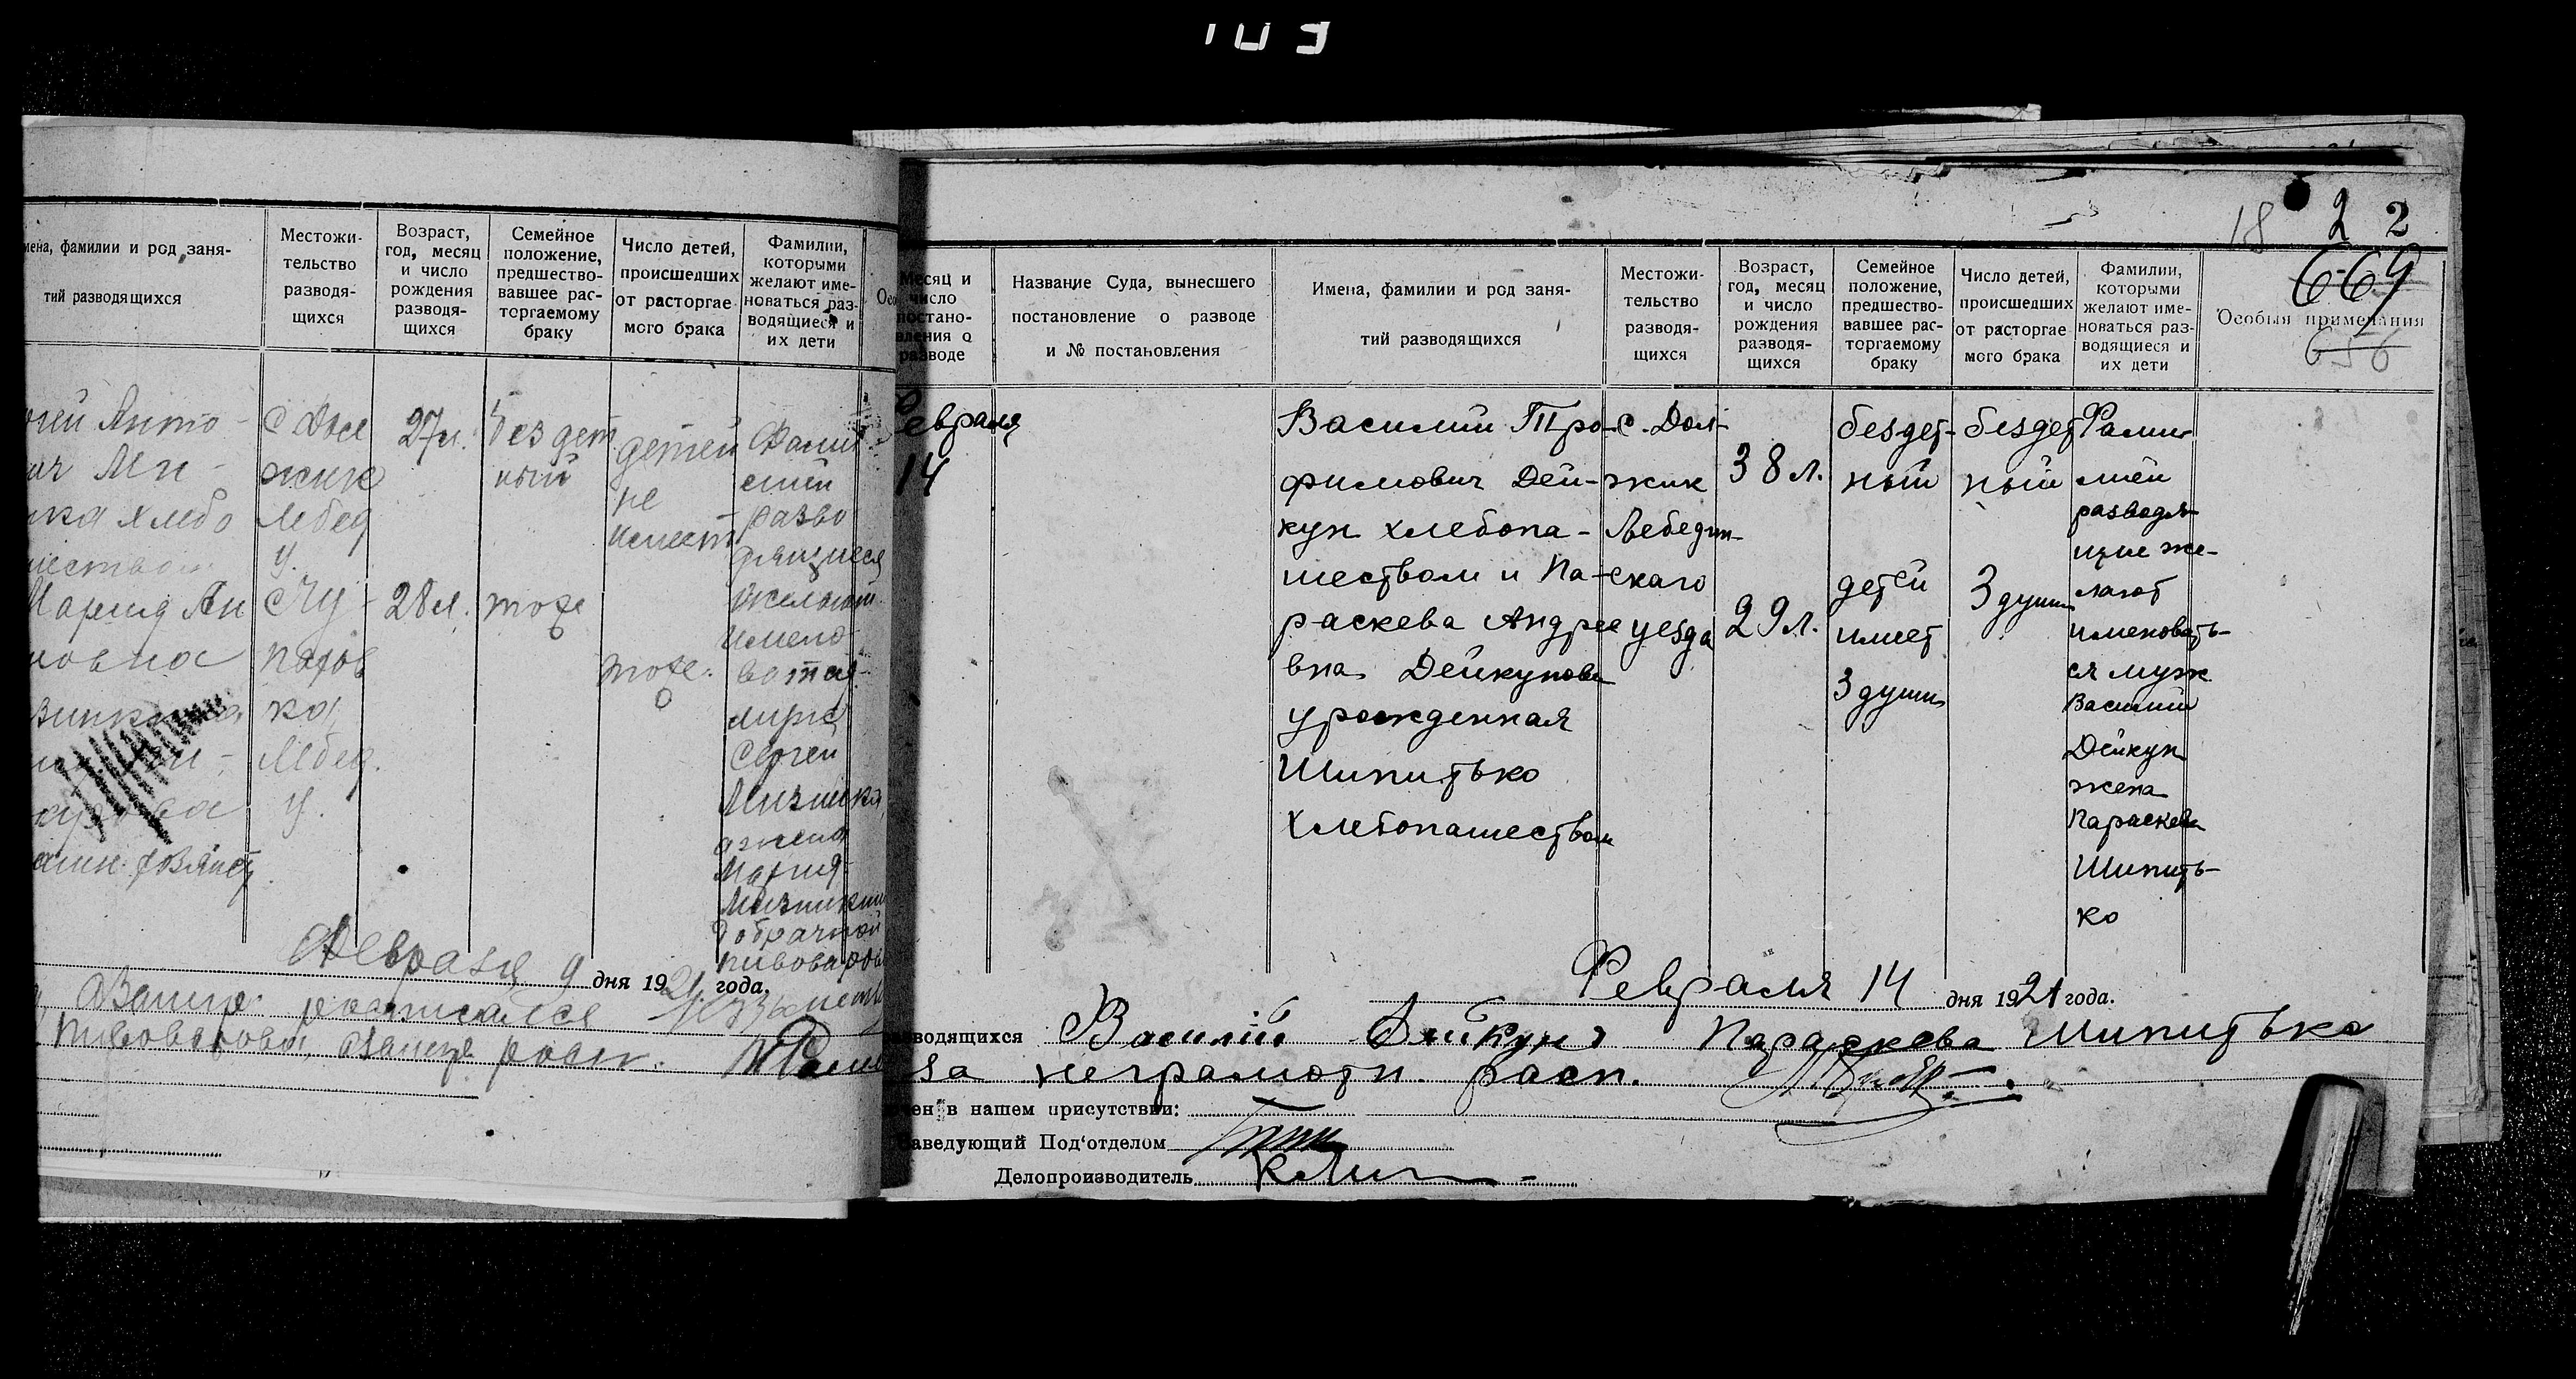 103
мена, фамилии и род заня-
тий разводящихся
Местожи-
тельство
разводя-
щихся
Возраст,
год, месяц
и число
рождения
разводя-
щихся
Семейное
положение,
предшество-
вавшее рас-
торгаемому
браку
Число детей,
происшедших
от расторгае
мого брака
Фамилии,
которыми
желают име-
новаться раз-
водящиеся и
их дети
Осо
гей Анто-
ич Ми-
хлебо
шеством
Мария Ан
новна
с Дол
жик
Лебед
у.
с Чу-
пахов
ка
Лебед.
у.
27 л.
28 л.
без дет
ный
тоже
детей
не
имеет
тоже.
Фами
лией
разво
дящиеся
желают
имено-
ватся
муж
Сергей
Мизика,
а жена
Мария
добрачной
пивовар
Февраля 9 дня 1921 года.
расписался
Пивоварова, росп.
18 2 2
669
656
Месяц и
число
постано-
вления о
разводе
Название Суда, вынесшего
постановление о разводе
и № постановления
Имена, фамилии и род заня-
тий разводящихся
Местожи-
тельство
разводя-
щихся
Возраст,
год, месяц
и число
рождения
разводя-
щихся
Семейное
положение,
предшество-
вавшее рас-
торгаемому
браку
Число детей,
происшедших
от расторгае
мого брака
Фамилии,
которыми
желают име-
новаться раз-
водящиеся и
их дети
Особыя примечания
Февраля
14
Василий Тро-
фимович Дей-
кун хлебопа-
шеством и Па-
раскева Андрее
вна Дейкунова
урожденная
Шипитько
Хлебопашеством
с. Дол-
жик
Лебедин-
скаго
уезда
38 л.
29 л.
бездет-
ный
детей
имеет
3 души
бездет
ный
3 души
Фами
лией
разводя-
щие же-
лают
именовать-
ся муж
Василий
Дейкун
жена
Параскева
Шипить-
ко
Февраля 14 дня 1921 года.
зводящихся Василій Дейкунъ Параскева Шипитько
За неграмотн. расп.
чен в нашем присутствии:
Заведующий Под'отделом
Делопроизводитель